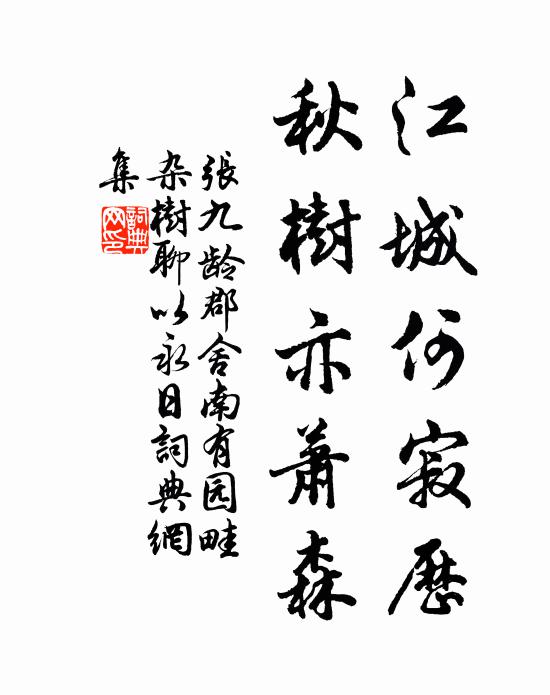 江城何寂歷
秋樹亦蕭森
張九龄郡舍南有园畦
杂樹聊以永日詞典網
集
詞典网印